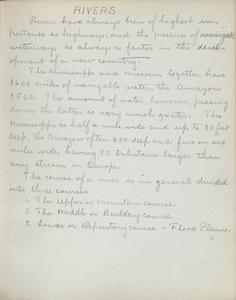 RIVERS
Rivers have always been of highest im-
portance as highways, and the presence of navigable
waterways is always a factor in the devel-
opment of a new country.
The Mississippi and Missouri together have
3600 miles of navigable water, the Amazon
3500. The amount of water, however, passing
down the latter is very much greater. The
Mississippi is half a mile wide and up to 80 feet
deep, the Amazon often 600 deep and five or six
miles wide, having 80 tributaries larger than
any stream in Europe.
The course of a river is in general divided
into three courses
1. The Upper or Mountain course.
2. The Middle or Bouldery course.
3. Lower or Depository course - Flood Plains.